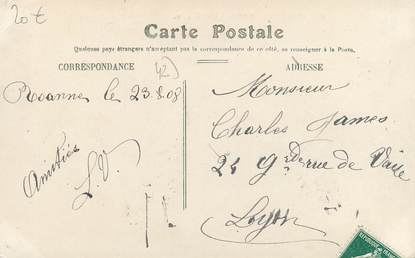 20€
Carte Postale
Quelques pays étrangers n'acceptant pas la correspondance de ce côté, se renseigner à la Poste.
CORRESPONDANCE
42)
ADRESSE
Roanne le 23.8.08
Amitiés
L.V.
Monsieur
Charles James
24 Gde rue de Vaise
Lyon